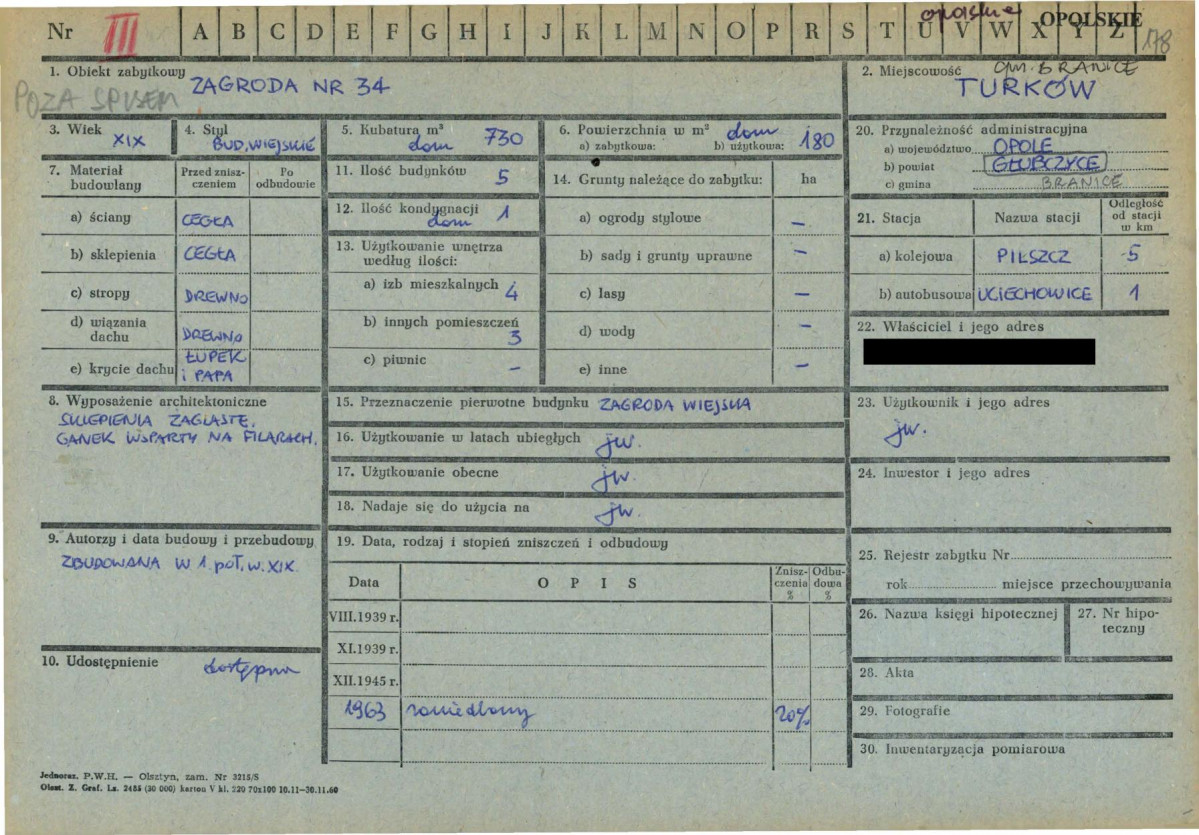 Nr III A B C D E F G H I J K L M N O P R S T U V W X Y Z
opolskie OPOLSKIE
178
1. Obiekt zabytkowy ZAGRODA NR 34
POZA SPISEM
2. Miejscowość GM. BRANICE
TURKÓW
3. Wiek XIX
4. Styl BUD. WIEJSKIE
5. Kubatura m³ dom 730
6. Powierzchnia w m² dom 180
a) zabytkowa: b) użytkowa:
7. Materiał budowlany
Przed zniszczeniem
Po odbudowie
a) ściany CEGŁA
b) sklepienia CEGŁA
c) stropy DREWNO
d) wiązania dachu DREWNO
e) krycie dachu ŁUPEK i PAPA
8. Wyposażenie architektoniczne
SKLEPIENIA ŻAGLASTE,
GANEK WSPARTY NA FILARACH.
9. Autorzy i data budowy i przebudowy
ZBUDOWANA W 1. POŁ. W. XIX.
10. Udostępnienie dostępna
11. Ilość budynków 5
12. Ilość kondygnacji 1
dom
13. Użytkowanie wnętrza
według ilości:
a) izb mieszkalnych 4
b) innych pomieszczeń 3
c) piwnic –
14. Grunty należące do zabytku: ha
a) ogrody stylowe –
b) sady i grunty uprawne –
c) lasy –
d) wody –
e) inne –
15. Przeznaczenie pierwotne budynku ZAGRODA WIEJSKA
16. Użytkowanie w latach ubiegłych jw.
17. Użytkowanie obecne jw.
18. Nadaje się do użycia na jw.
19. Data, rodzaj i stopień zniszczeń i odbudowy
Data OPIS Zniszczenia % Odbudowa %
VIII.1939 r.
XI.1939 r.
XII.1945 r.
1963 zaniedbany 20%
20. Przynależność administracyjna
a) województwo OPOLE
b) powiat GŁUBCZYCE
c) gmina BRANICE
21. Stacja Nazwa stacji Odległość od stacji w km
a) kolejowa PILSZCZ 5
b) autobusowa UCIECHOWICE 1
22. Właściciel i jego adres
23. Użytkownik i jego adres
jw.
24. Inwestor i jego adres
25. Rejestr zabytku Nr
rok miejsce przechowywania
26. Nazwa księgi hipotecznej
27. Nr hipoteczny
28. Akta
29. Fotografie
30. Inwentaryzacja pomiarowa
Jednoraz. P.W.H. — Olsztyn, zam. Nr 3215/S
Olszt. Z. Graf. Lz. 2485 (30 000) karton V kl. 220 70x100 10.11—30.11.60